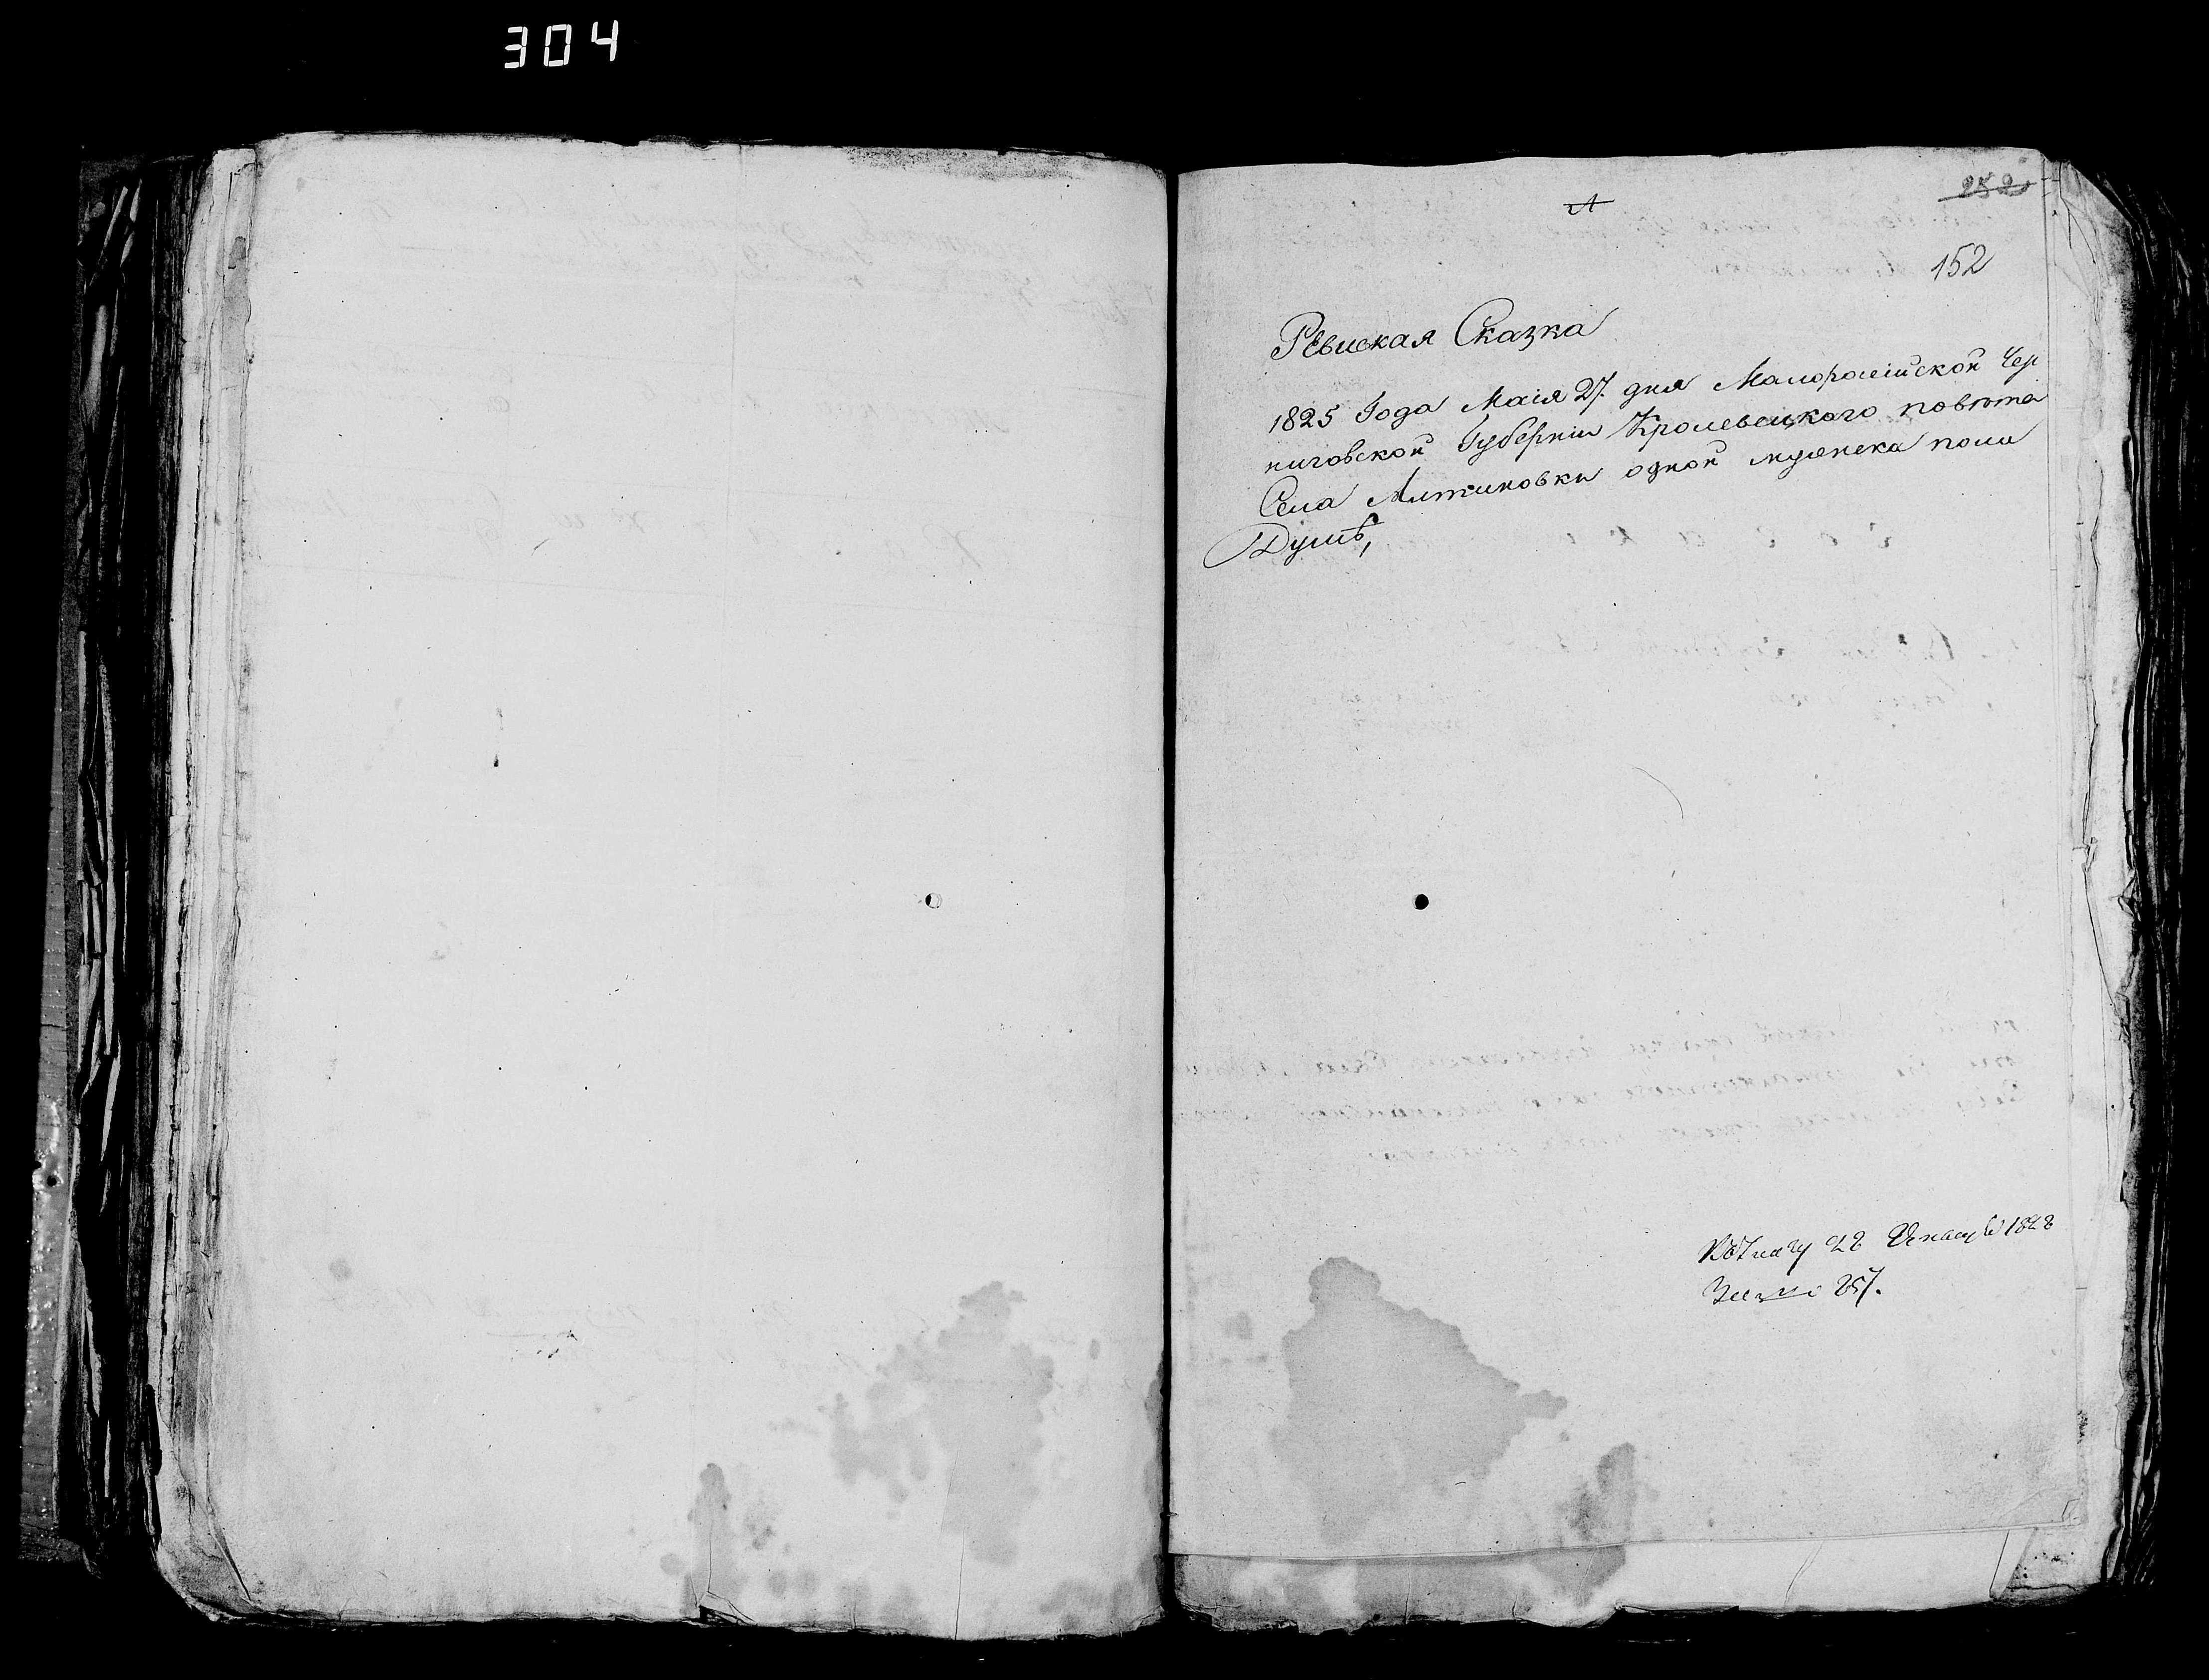 304
252
152
Ревиская Сказка
1825 Года Маія 27. дня Малоросеійской Чер
ниговской Губерніи Кролевецкого повѣта
Села Литиновки одной мужеска пола
Душѣ,
28 1828
257.